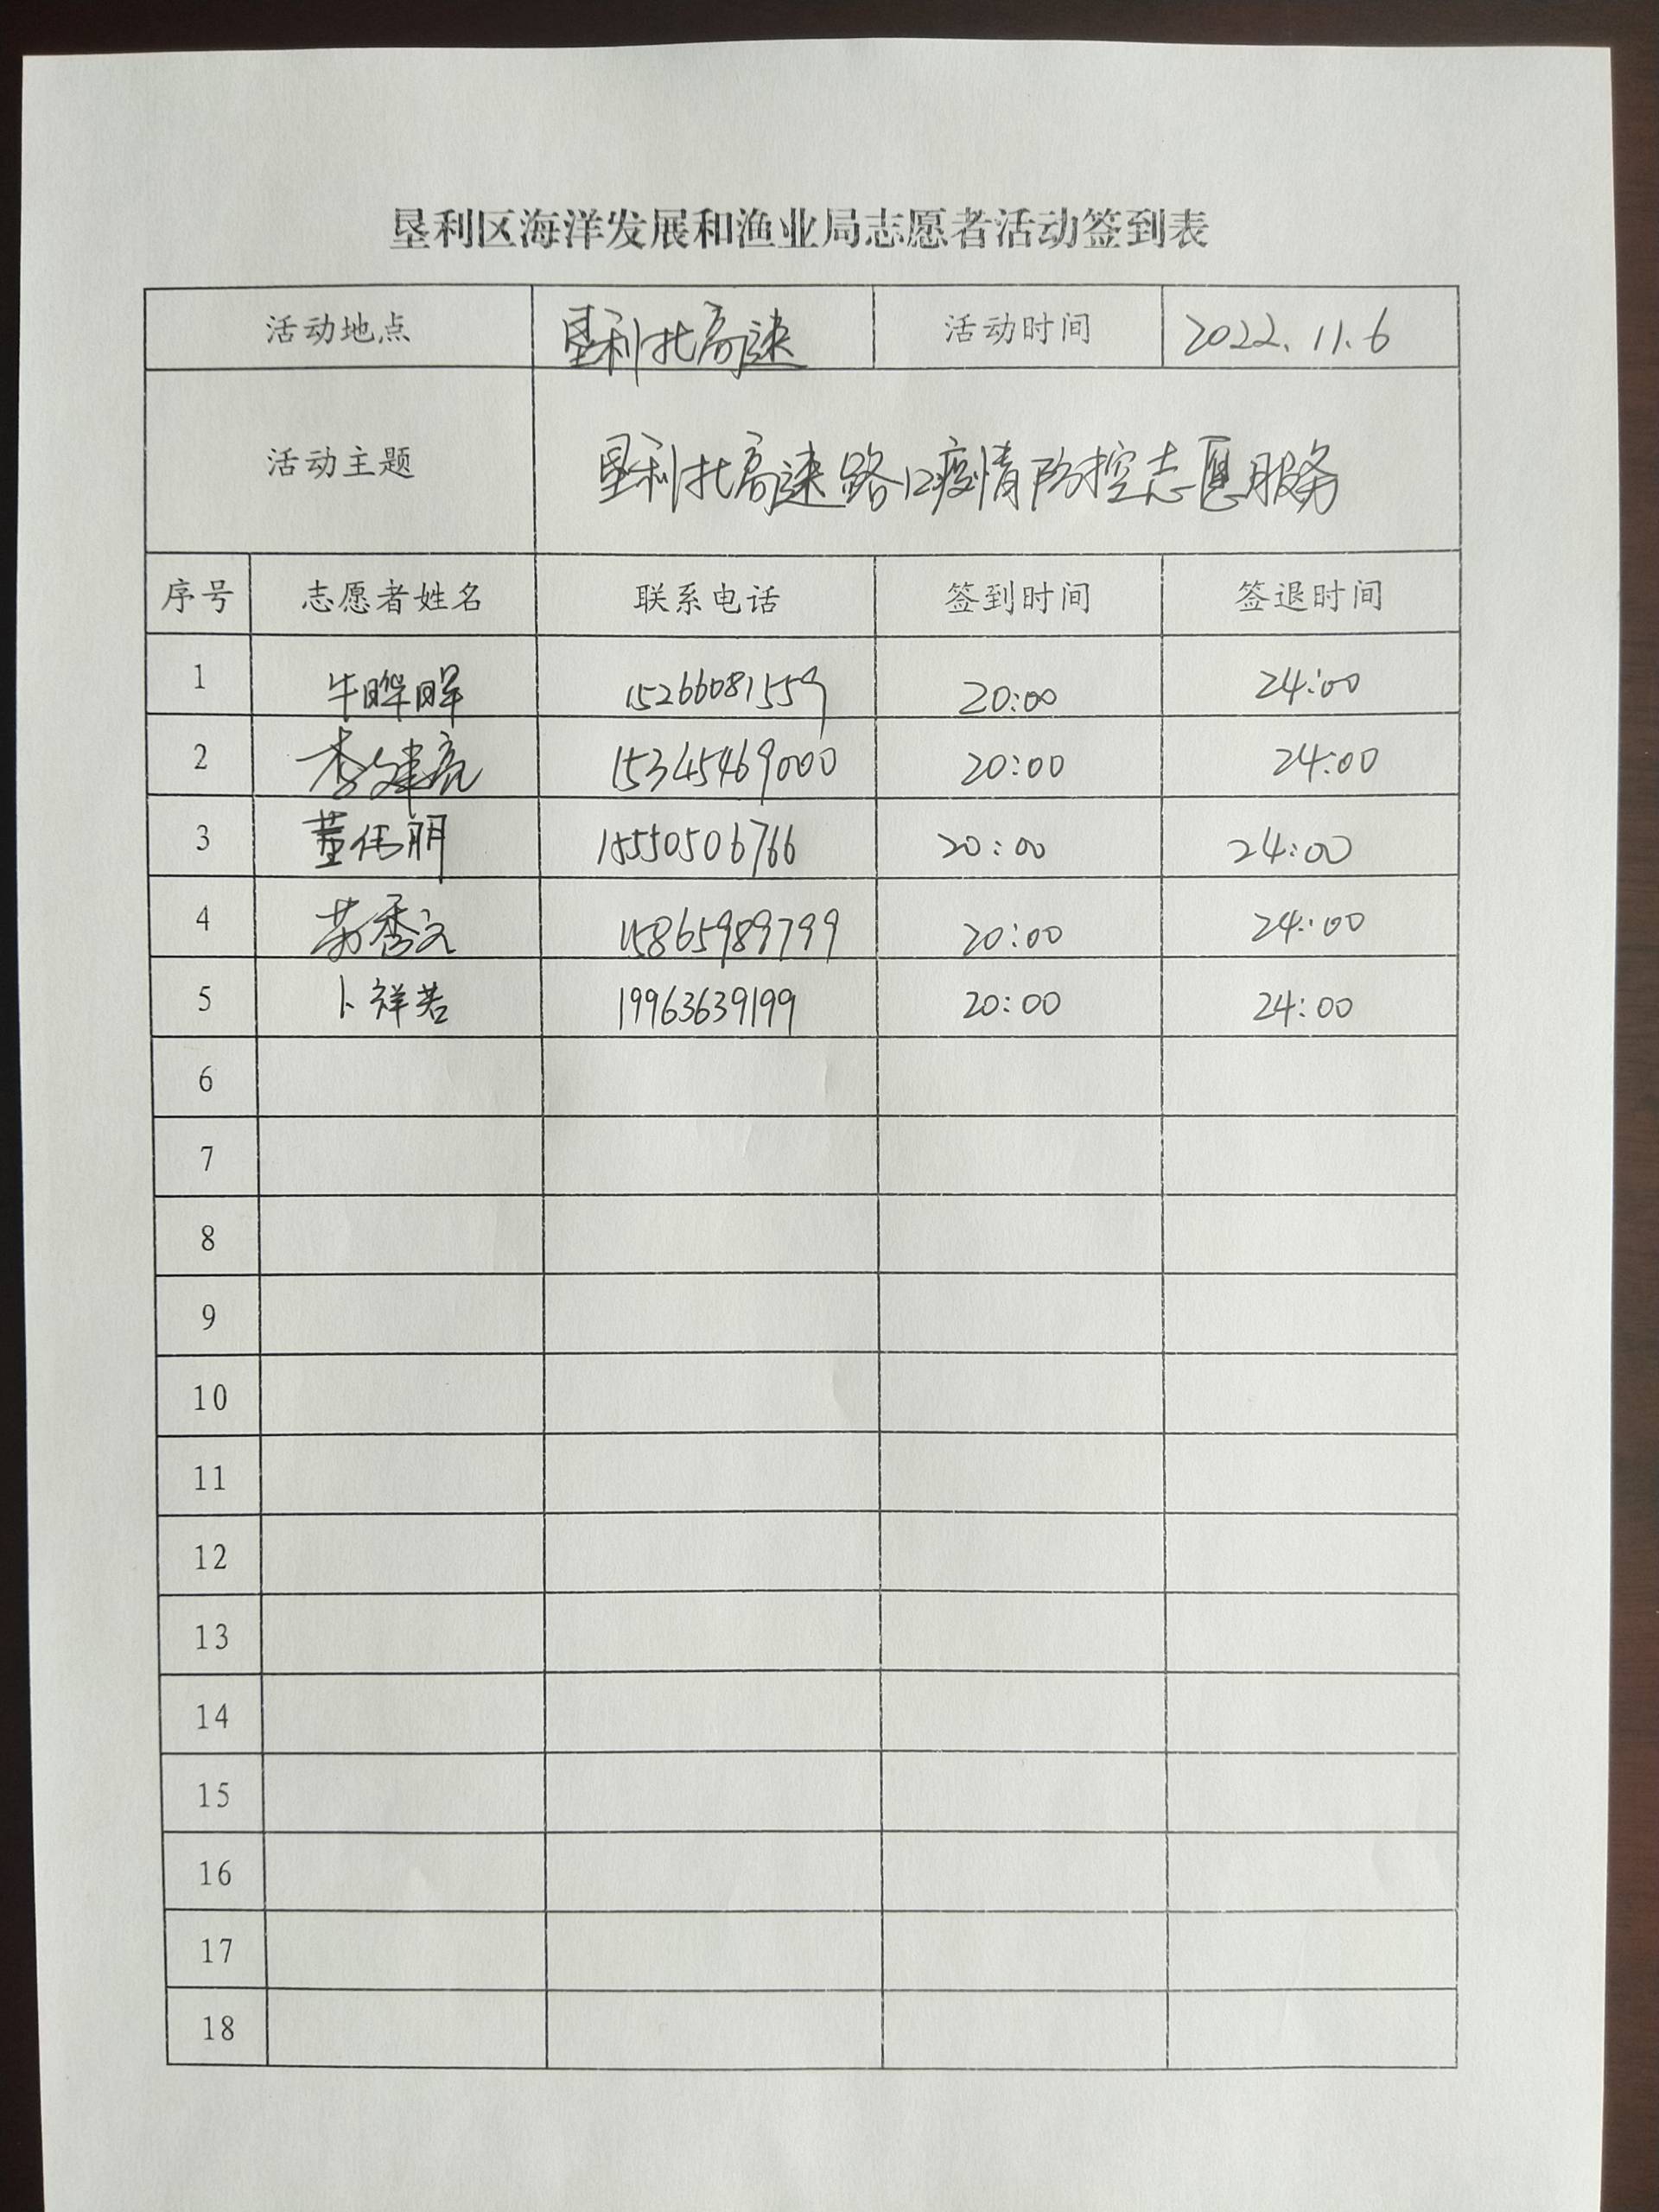 垦利区海洋发展和渔业局志愿者活动签到表
活动地点 垦利北高速 活动时间 2022.11.6
活动主题 垦利北高速路口疫情防控志愿服务
序号 志愿者姓名 联系电话 签到时间 签退时间
1 牛晔晖 15266081559 20:00 24:00
2 李建亮 15345469000 20:00 24:00
3 董伟朋 18550506766 20:00 24:00
4 苏秀文 15865989799 20:00 24:00
5 卜祥若 19963639199 20:00 24:00
6
7
8
9
10
11
12
13
14
15
16
17
18